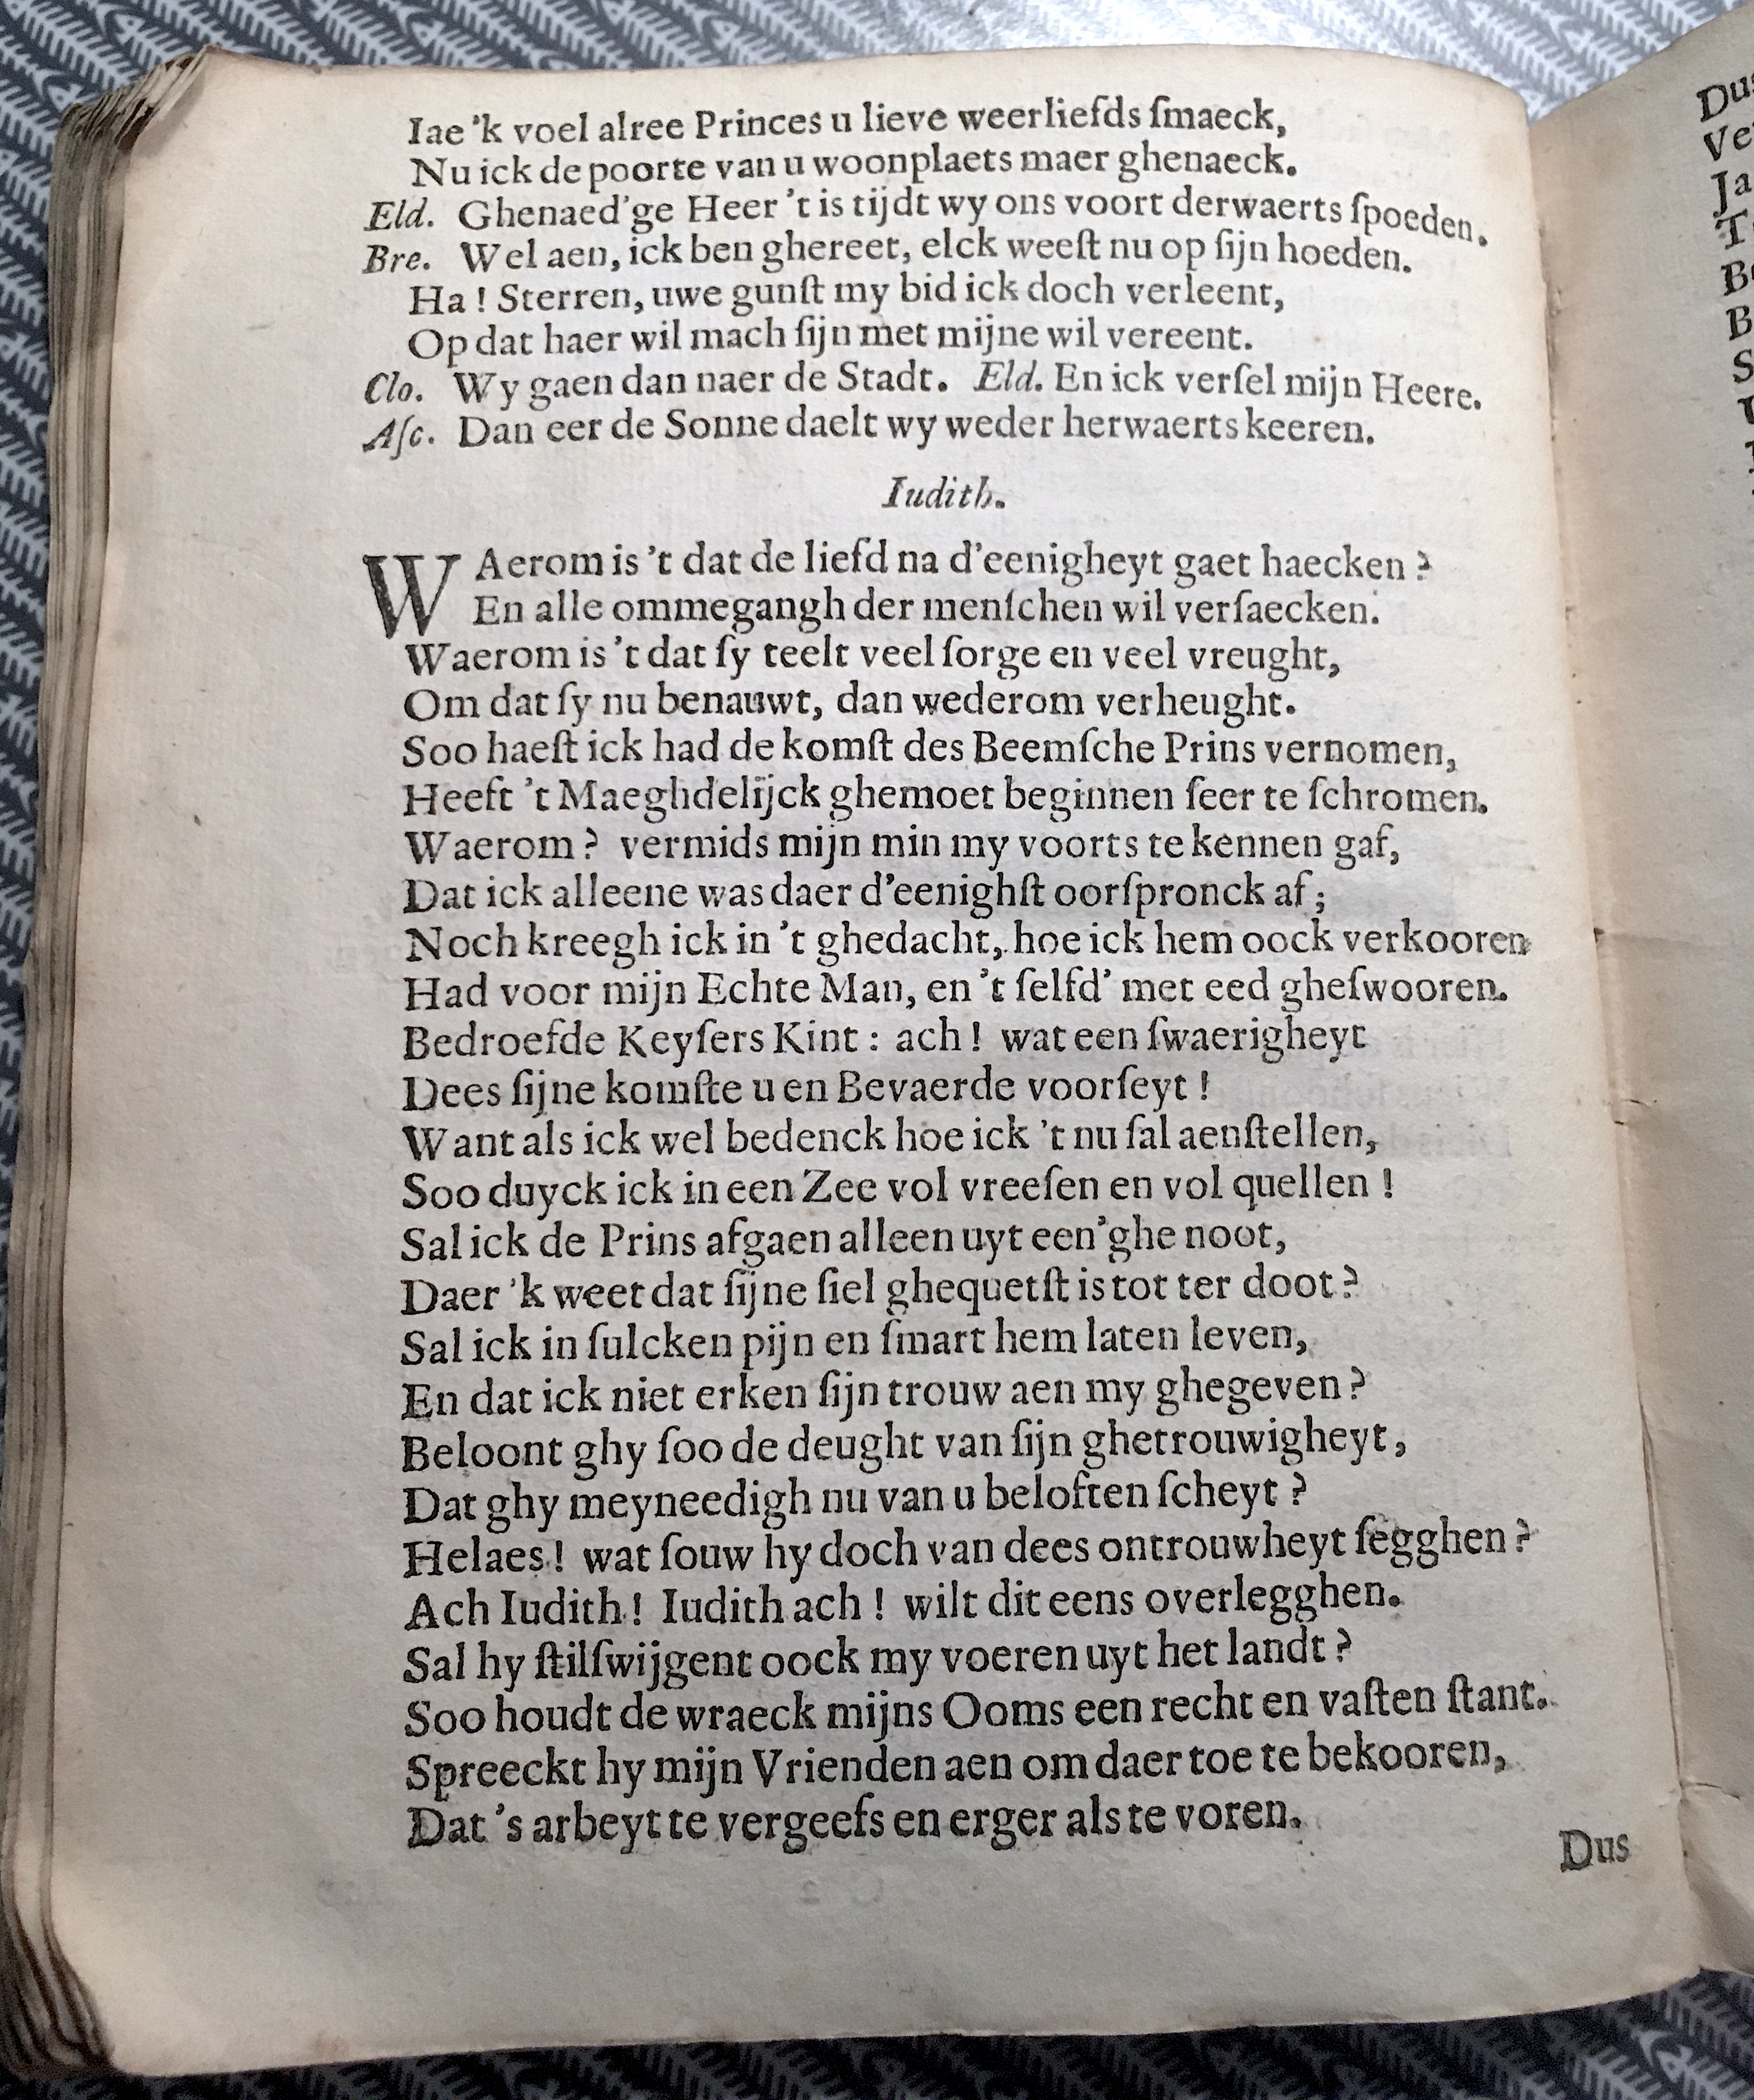 Iae 'k voel alree Princes u lieve weerliefds ſmaeck,
Nu ick de poorte van u woonplaets maer ghenaeck.
Eld. Ghenaed'ge Heer 't is tijdt wy ons voort derwaerts ſpoeden.
Bre. Wel aen, ick ben ghereet, elck weeſt nu op ſijn hoeden.
Ha! Sterren, uwe gunſt my bid ick doch verleent,
Op dat haer wil mach ſijn met mijne wil vereent.
Clo. Wy gaen dan naer de Stadt. Eld. En ick verſel mijn Heere.
Aſc. Dan eer de Sonne daelt wy weder herwaerts keeren.
Iudith.
WAerom is 't dat de liefd na d'eenigheyt gaet haecken?
En alle ommegangh der menſchen wil verſaecken.
Waerom is 't dat ſy teelt veel ſorge en veel vreught,
Om dat ſy nu benauwt, dan wederom verheught.
Soo haeſt ick had de komſt des Beemſche Prins vernomen,
Heeft 't Maeghdelijck ghemoet beginnen ſeer te ſchromen.
Waerom? vermids mijn min my voorts te kennen gaf,
Dat ick alleene was daer d'eenighſt oorſpronck af;
Noch kreegh ick in 't ghedacht, hoe ick hem oock verkooren
Had voor mijn Echte Man, en 't ſelfd' met eed gheſwooren.
Bedroefde Keyſers Kint: ach! wat een ſwaerigheyt
Dees ſijne komſte u en Bevaerde voorſeyt!
Want als ick wel bedenck hoe ick 't nu ſal aenſtellen,
Soo duyck ick in een Zee vol vreeſen en vol quellen!
Sal ick de Prins afgaen alleen uyt een'ghe noot,
Daer 'k weet dat ſijne ſiel ghequetſt is tot ter doot?
Sal ick in ſulcken pijn en ſmart hem laten leven,
En dat ick niet erken ſijn trouw aen my ghegeven?
Beloont ghy ſoo de deught van ſijn ghetrouwigheyt,
Dat ghy meyneedigh nu van u beloften ſcheyt?
Helaes! wat ſouw hy doch van dees ontrouwheyt ſegghen?
Ach Iudith! Iudith ach! wilt dit eens overlegghen.
Sal hy ſtilſwijgent oock my voeren uyt het landt?
Soo houdt de wraeck mijns Ooms een recht en vaſten ſtant.
Spreeckt hy mijn Vrienden aen om daer toe te bekooren,
Dat 's arbeyt te vergeefs en erger als te voren.
Dus
Dus
Ve
Ja
T
Be
B
S